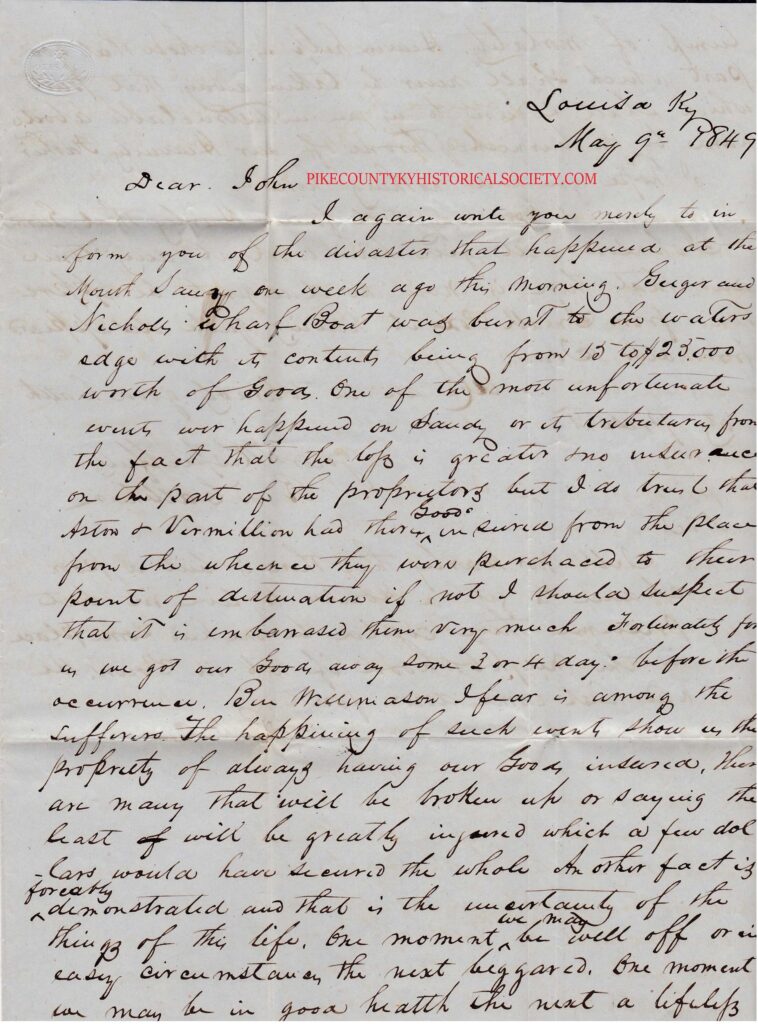 Louisa Ky
May 9th 1849
Dear. John
PIKECOUNTYKYHISTORICALSOCIETY.COM
I again write you merely to in
form you of the disaster that happened at the
Mouth Sandy one week ago this morning. Geiger and
Nichols Wharf Boat was burnt to the waters
edge with its contents being from 15 to $25.000
worth of Goods. One of the most unfortunate
events ever happened on Sandy or its tributaries from
the fact that the loss is greater & no insurance
on the part of the proprietors but I do trust that
Aston & Vermillion had there Goods insured from the place
from the whence they were purchased to their
point of destination if not I should suspect
that it is embarrased them very much Fortunately for
us we got our Goods away some 3 or 4 days before the
occurrence. Ben Williamason I fear is among the
sufferers. The happining of such events show us the
propriety of always having our Goods insured. Ther
are many that will be broken up or saying the
least of will be greatly injured which a few dol
-lars would have secured the whole An other fact is
forcably demonstrated and that is the uncertainty of the
things of this life. One moment we may be well off or in
easy circumstances the next beggared. One moment
we may be in good health the next a lifeless